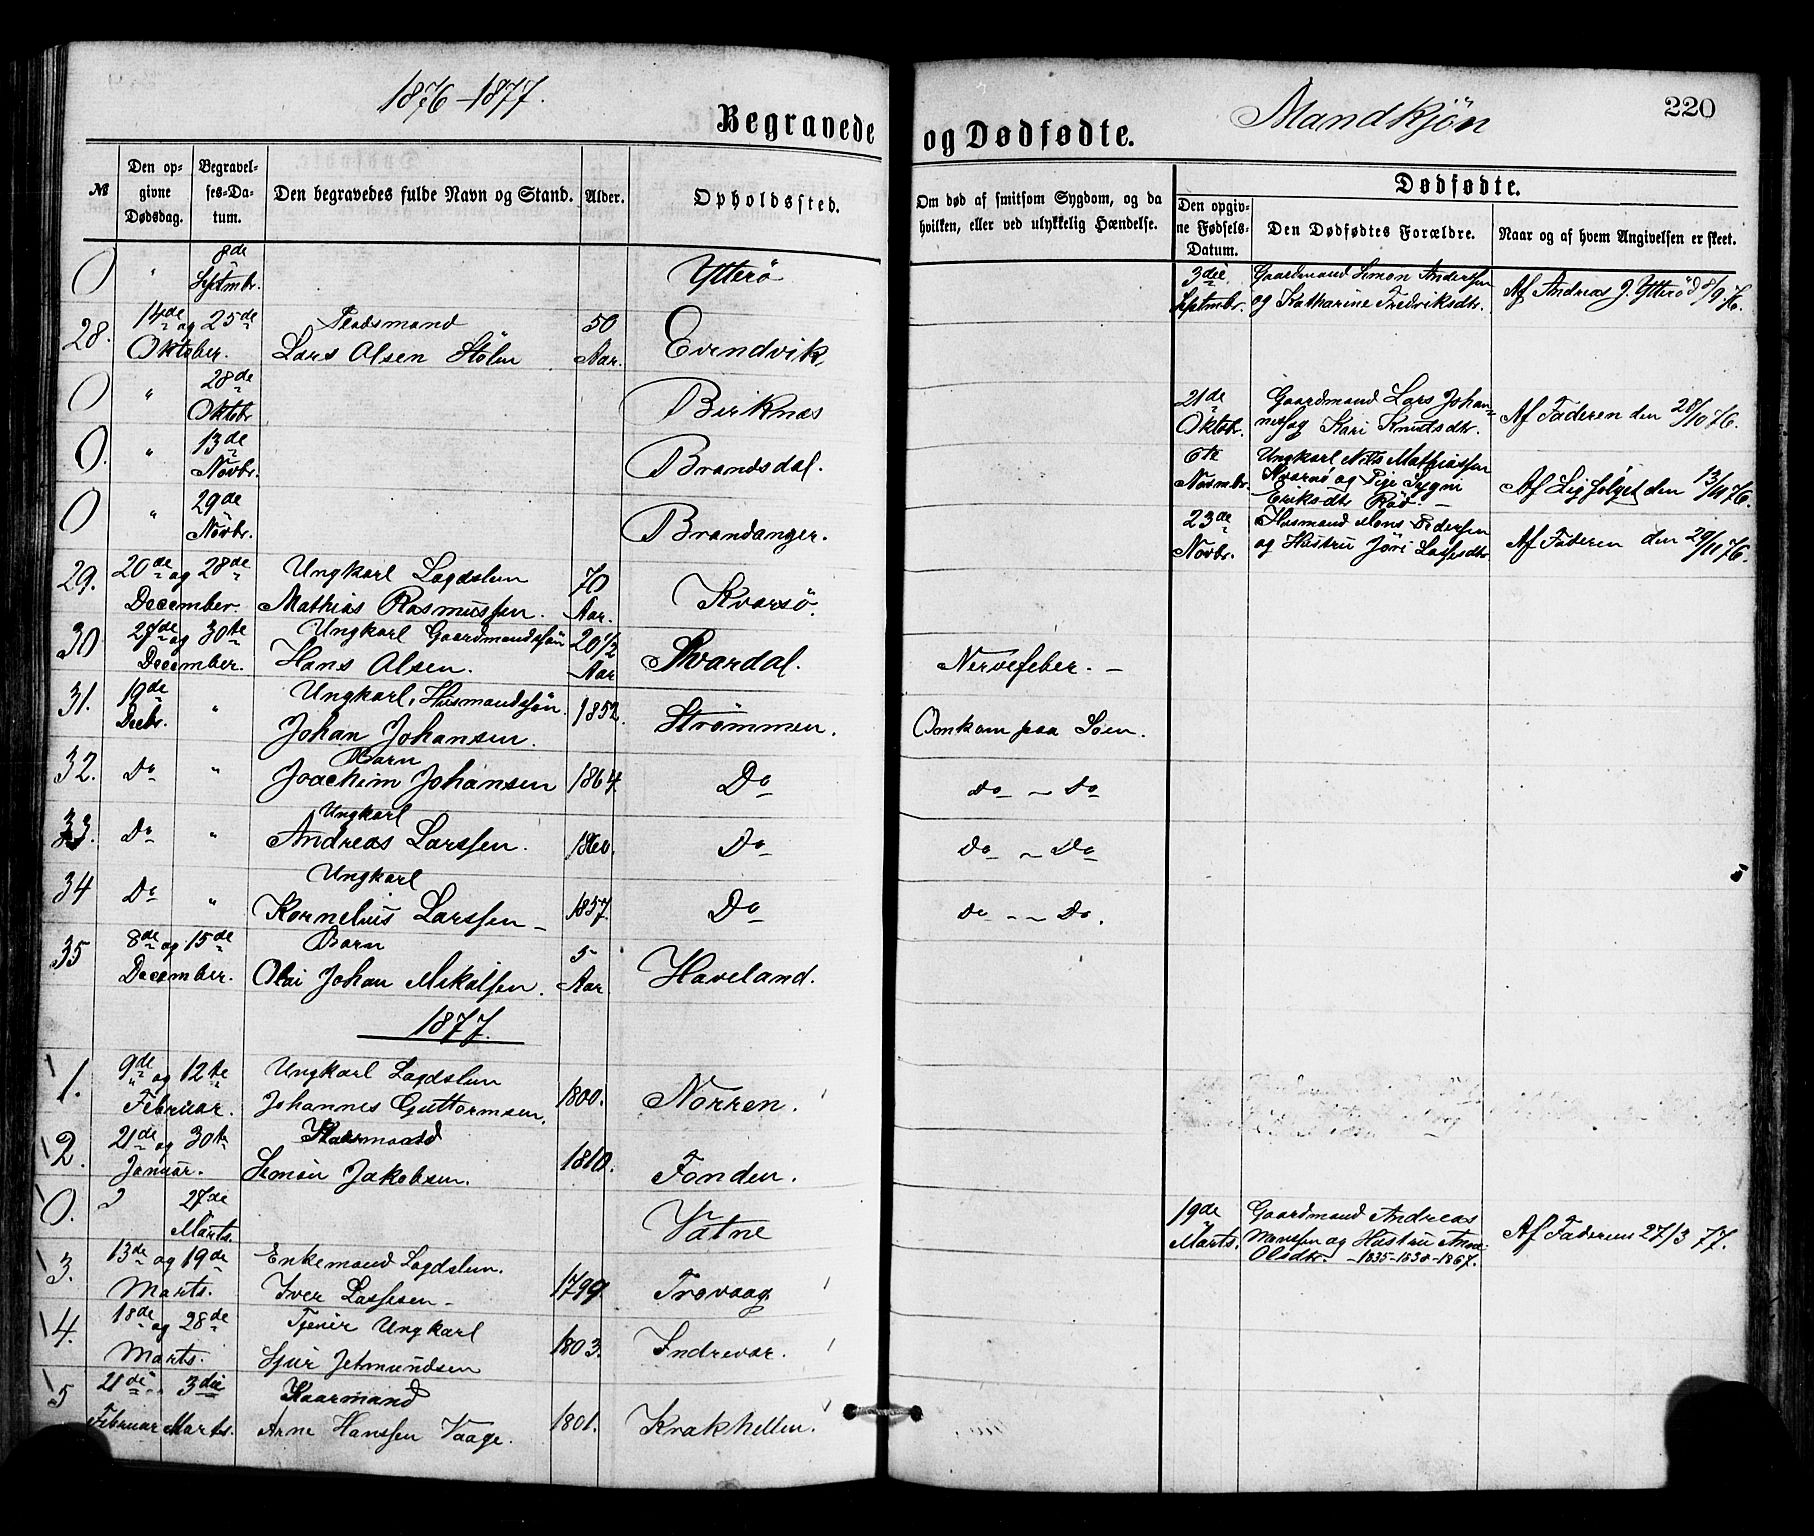 1876-1877.
Begravede og Dødfødte.
Mandkjøn
220
№
Den opgivne Dødsdag.
Begravelses-Datum.
Den begravedes fulde Navn og Stand.
Alder.
Opholdssted.
Om død af smitsom Sygdom, og da hvilken, eller ved ulykkelig Hændelse.
Dødfødte.
Den opgivne Fødsels-Datum.
Den Dødfødtes Forældre.
Naar og af hvem Angivelsen er skeet.
0 " 8de Septmbr. Ytterö 3die Septmbr. Gaardmand Simon Andersen og Katharine Fredriksdtr. Af Andreas J. Ytterö d 8/9 76.
28. 14de og 25de Oktober. Pladsmand Lars Olsen Stölen 50 Aar. Evindvik
0 " 28de Oktobr. Birknæs 21de Oktobr. Gaardmand Lars Johannes og Kari Knutsdtr. Af Faderen den 28/10 76.
0. " 13de Novbr. Brandsdal. 6te Novmbr. Ungkarl Nils Mathiassen Kvarnö og Pige Sygni Eriksdt. Röd. - Af Ligfølget den 13/11 76.
0 " 29de Novbr. Brandanger. 23de Novbr. Husmand Mons Pedersen og Hustru Jöri Lassesdtr. Af Faderen den 29/11 76.
29. 20de og 28de December. Ungkarl Lægdslem Mathias Rasmussen. 70 Aar. Kvarsö.
30 27de og 30te December. Ungkarl Gaardmandssön Hans Olsen. 20 1/2 Aar Svardal. Nervefeber. -
31. 19de Decbr. " Ungkarl, Husmandssön. Johan Johansen. 1852. Strömmen. Omkom paa Söen.
32. Do " Barn Joachim Johansen 1864 Do do - do
33. Do " Ungkarl Andreas Larssen. 1860. Do do - Do
34 Do " Ungkarl Kornelius Larssen - 1857. Do do - - Do.
35 8de og 15de December. Barn Olai Johan Mikalsen. 5 Aar Haveland.
1877.
1. 9de og 12te Februar. Ungkarl Lægdslem Johannes Guttormsen. 1800. Norren.
2. 21de og 30te Januar. Simon Jakobsen. 1810. Fonden.
0. 27de Marts. Vatne 19de Marts. Gaardmand Andreas Hanssen og Hustru Anne Olsdtr. - 1835-1838-1867. Af Faderens 27/3 77.
3. 13de og 19de Marts. Enkemand Lægdslem. Iver Lassesen - 1799 Trovaag
4. 18de og 28de Marts. Tjener Ungkarl Sjur Jetmundsen 1803. Indrevær.
5 21de 3die Februar Marts. Kaarmand Arne Hanssen Vaage. 1801. Krakhellen.